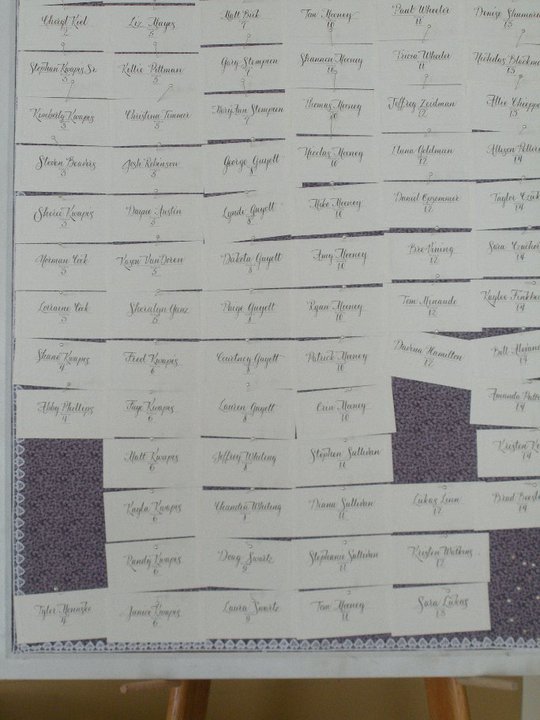 Cheryl Keel
Liz Mayes
5
Matt Bick
7
Tom Meeney
10
Paul Wheeler
11
Denise
Stephan Kwapes Sr.
3
Kellie Pittman
5
Gary Stempien
7
Shannon Meeney
10
Tricia Wheeler
11
Nicholas
Kimberly Kwapes
3
Christina Tommer
5
MaryAnn Stempien
7
Thomas Meeney
10
Jeffrey Zeidman
11
Allie
Steven Beavers
3
Josh Robinson
5
George Guyett
8
Nicolas Meeney
10
Dana Goldman
12
Allison
14
Sheree Kwapes
3
Dayne Austin
5
Lynde Guyett
8
Mike Meeney
10
Daniel
12
Taylor
14
Norman Cook
3
Karyn VanDoren
5
Dakota Guyett
8
Amy Meeney
10
Bre
12
Sara
14
Lorraine Cook
3
Sheralyn
5
Paige Guyett
8
Ryan Meeney
10
Tom Menaude
12
Kaylee
14
Shane Kwapes
4
Fred Kwapes
6
Courtney Guyett
8
Patrick Meeney
10
Davina Hamilton
12
Bill
14
Abby Phillips
4
Faye Kwapes
6
Lauren Guyett
8
Meeney
10
Amanda
14
Matt Kwapes
6
Jeffrey Whiting
8
Stephen Sullivan
11
Kristen
14
Kayla Kwapes
6
Chandra Whiting
8
Diana Sullivan
11
Lukas Linn
12
Brad
Randy Kwapes
6
Doug Swartz
9
Stephanie Sullivan
11
Kristen Watkins
12
Tyler
4
Janice Kwapes
6
Laura Swartz
9
Tom Meeney
11
Sara Lukas
13